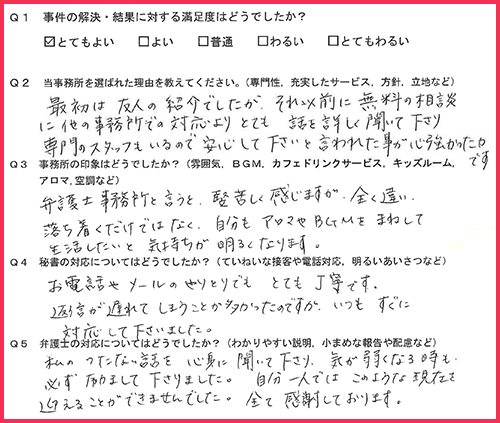 Q1 事件の解決・結果に対する満足度はどうでしたか？
☑とてもよい □よい □普通 □わるい □とてもわるい
Q2 当事務所を選ばれた理由を教えてください。(専門性，充実したサービス，方針，立地など)
最初は友人の紹介でしたが、それ以前に無料の相談
に他の事務所での対応よりとても話を詳しく聞いて下さり
専門のスタッフもいるので安心して下さいと言われた事が心強かったの
です
Q3 事務所の印象はどうでしたか？(雰囲気，BGM，カフェドリンクサービス，キッズルーム，
アロマ，空調など)
弁護士事務所と言うと、堅苦しく感じますが、全く違い、
落ち着くだけではなく、自分もアロマやBGMをまねして
生活したいと気持ちが明るくなります。
Q4 秘書の対応についてはどうでしたか？(ていねいな接客や電話対応，明るいあいさつなど)
お電話やメールのやりとりでもとても丁寧です。
返信が遅れてしまうことが多かったのですが、いつもすぐに
対応して下さいました。
Q5 弁護士の対応についてはどうでしたか？(わかりやすい説明，小まめな報告や配慮など)
私のつたない話を心身に聞いて下さり、気が弱くなる時も、
必ず励まして下さりました。自分一人ではこのような現在を
迎えることができませんでした。全て感謝しております。